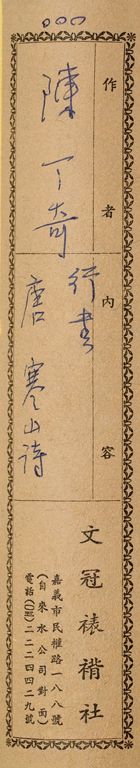 000
作者
陳丁奇
內容
行書
唐寒山诗
文冠裱褙社
嘉義市民權路一八八號
(自來水公司對面)
電話(〇五)二二二四四二九號